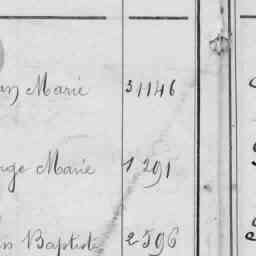 Marie 31146
Marie 1291
Baptiste 2596